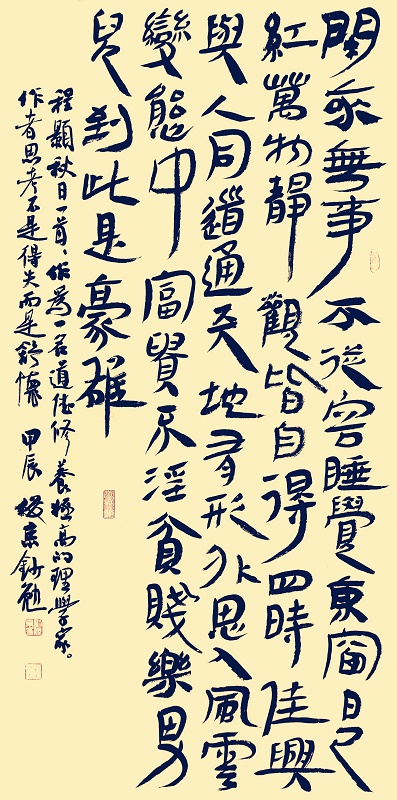 閑來無事不從容睡覺東窗日已
紅萬物靜觀皆自得四時佳興
與人同道通天地有形外思入風雲
變態中富貴不淫貧賤樂男
兒到此是豪雄
程顥秋日一首、作為一名道德修養極高的理学家。
作者思考不是得失而是舒懷 甲辰